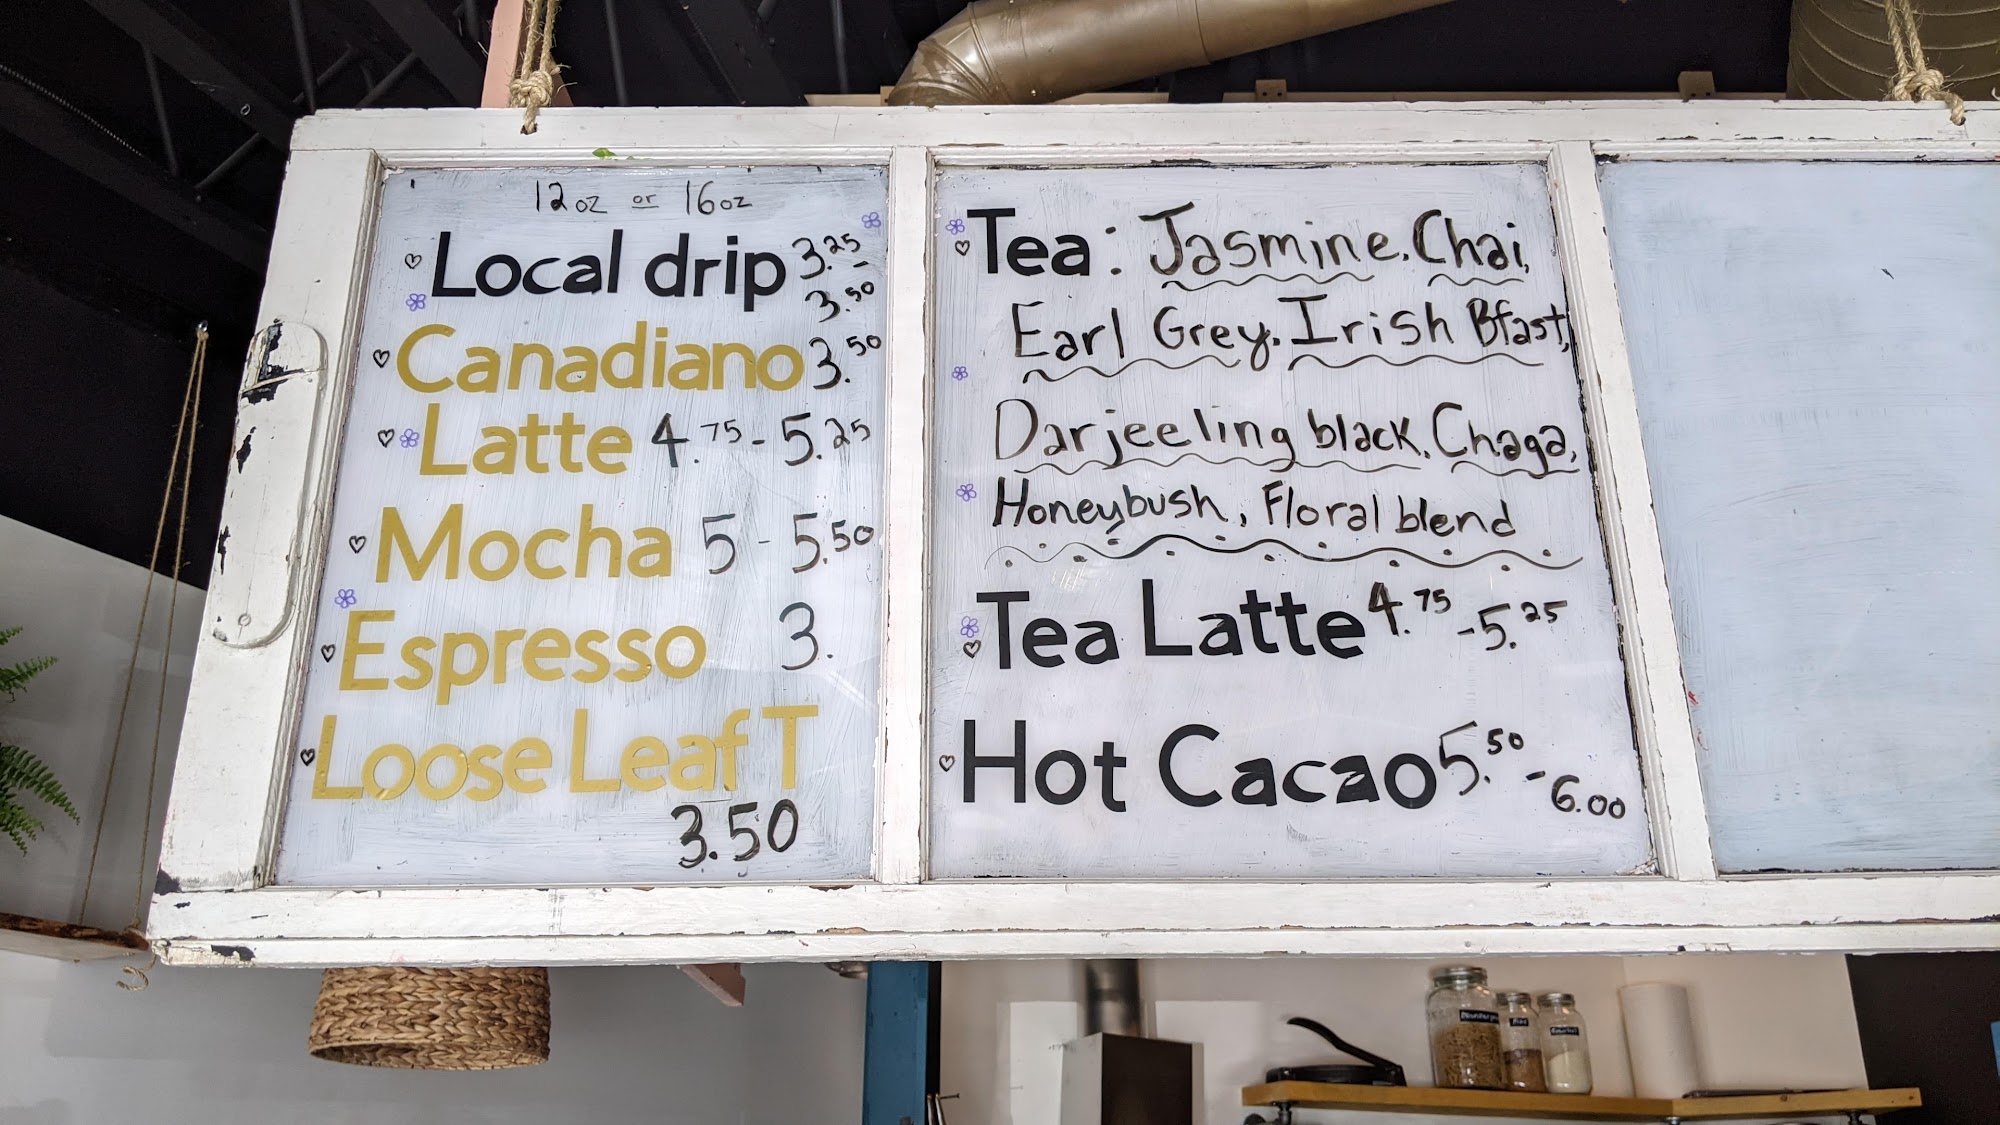 12oz or 16oz
Local drip 3.25 -
3.50
Canadiano 3.50
Latte 4.75 - 5.25
Mocha 5 - 5.50
Espresso 3.
Loose Leaf T
3.50
Tea: Jasmine, Chai,
Earl Grey, Irish Bfast,
Darjeeling black, Chaga,
Honeybush, Floral blend
Tea Latte 4.75 - 5.25
Hot Cacao 5.50 - 6.00